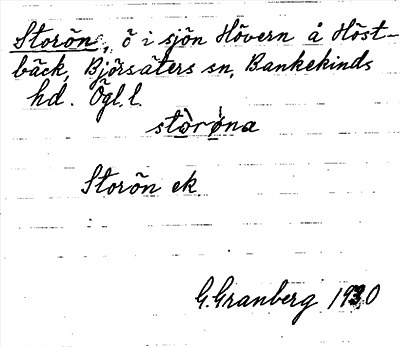 Storön, ö i sjön Hövern å Höst-
bäck, Björsäters sn, Bankekinds
hd. Ögl. l.
stòrǿna
Storön ek.
G. Granberg 1930